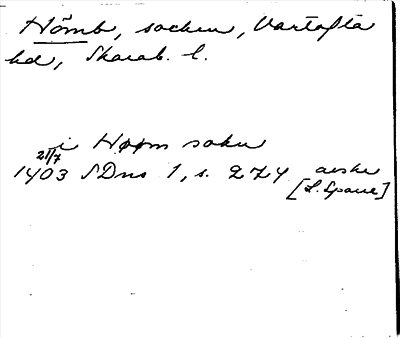 Hömb, socken, Vartofta
hd, Skarab. l.
i Høøm sokn
21/7
1403 SDns 1, s. 274 avskr
[L. Sparre]